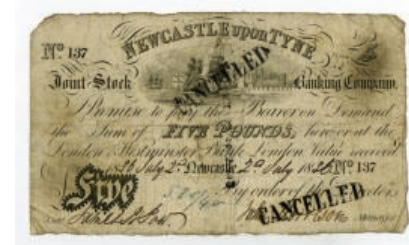 NEWCASTLE upon TYNE
Nº 137
Joint Stock Banking Company
CANCELLED
I Promise to pay the Bearer on Demand
the Sum of FIVE POUNDS, here or at the
London & Westminster Bank London Value received
Newcastle 2ᵈ July 1836 Nº 137
Five
By order of the Directors
CANCELLED